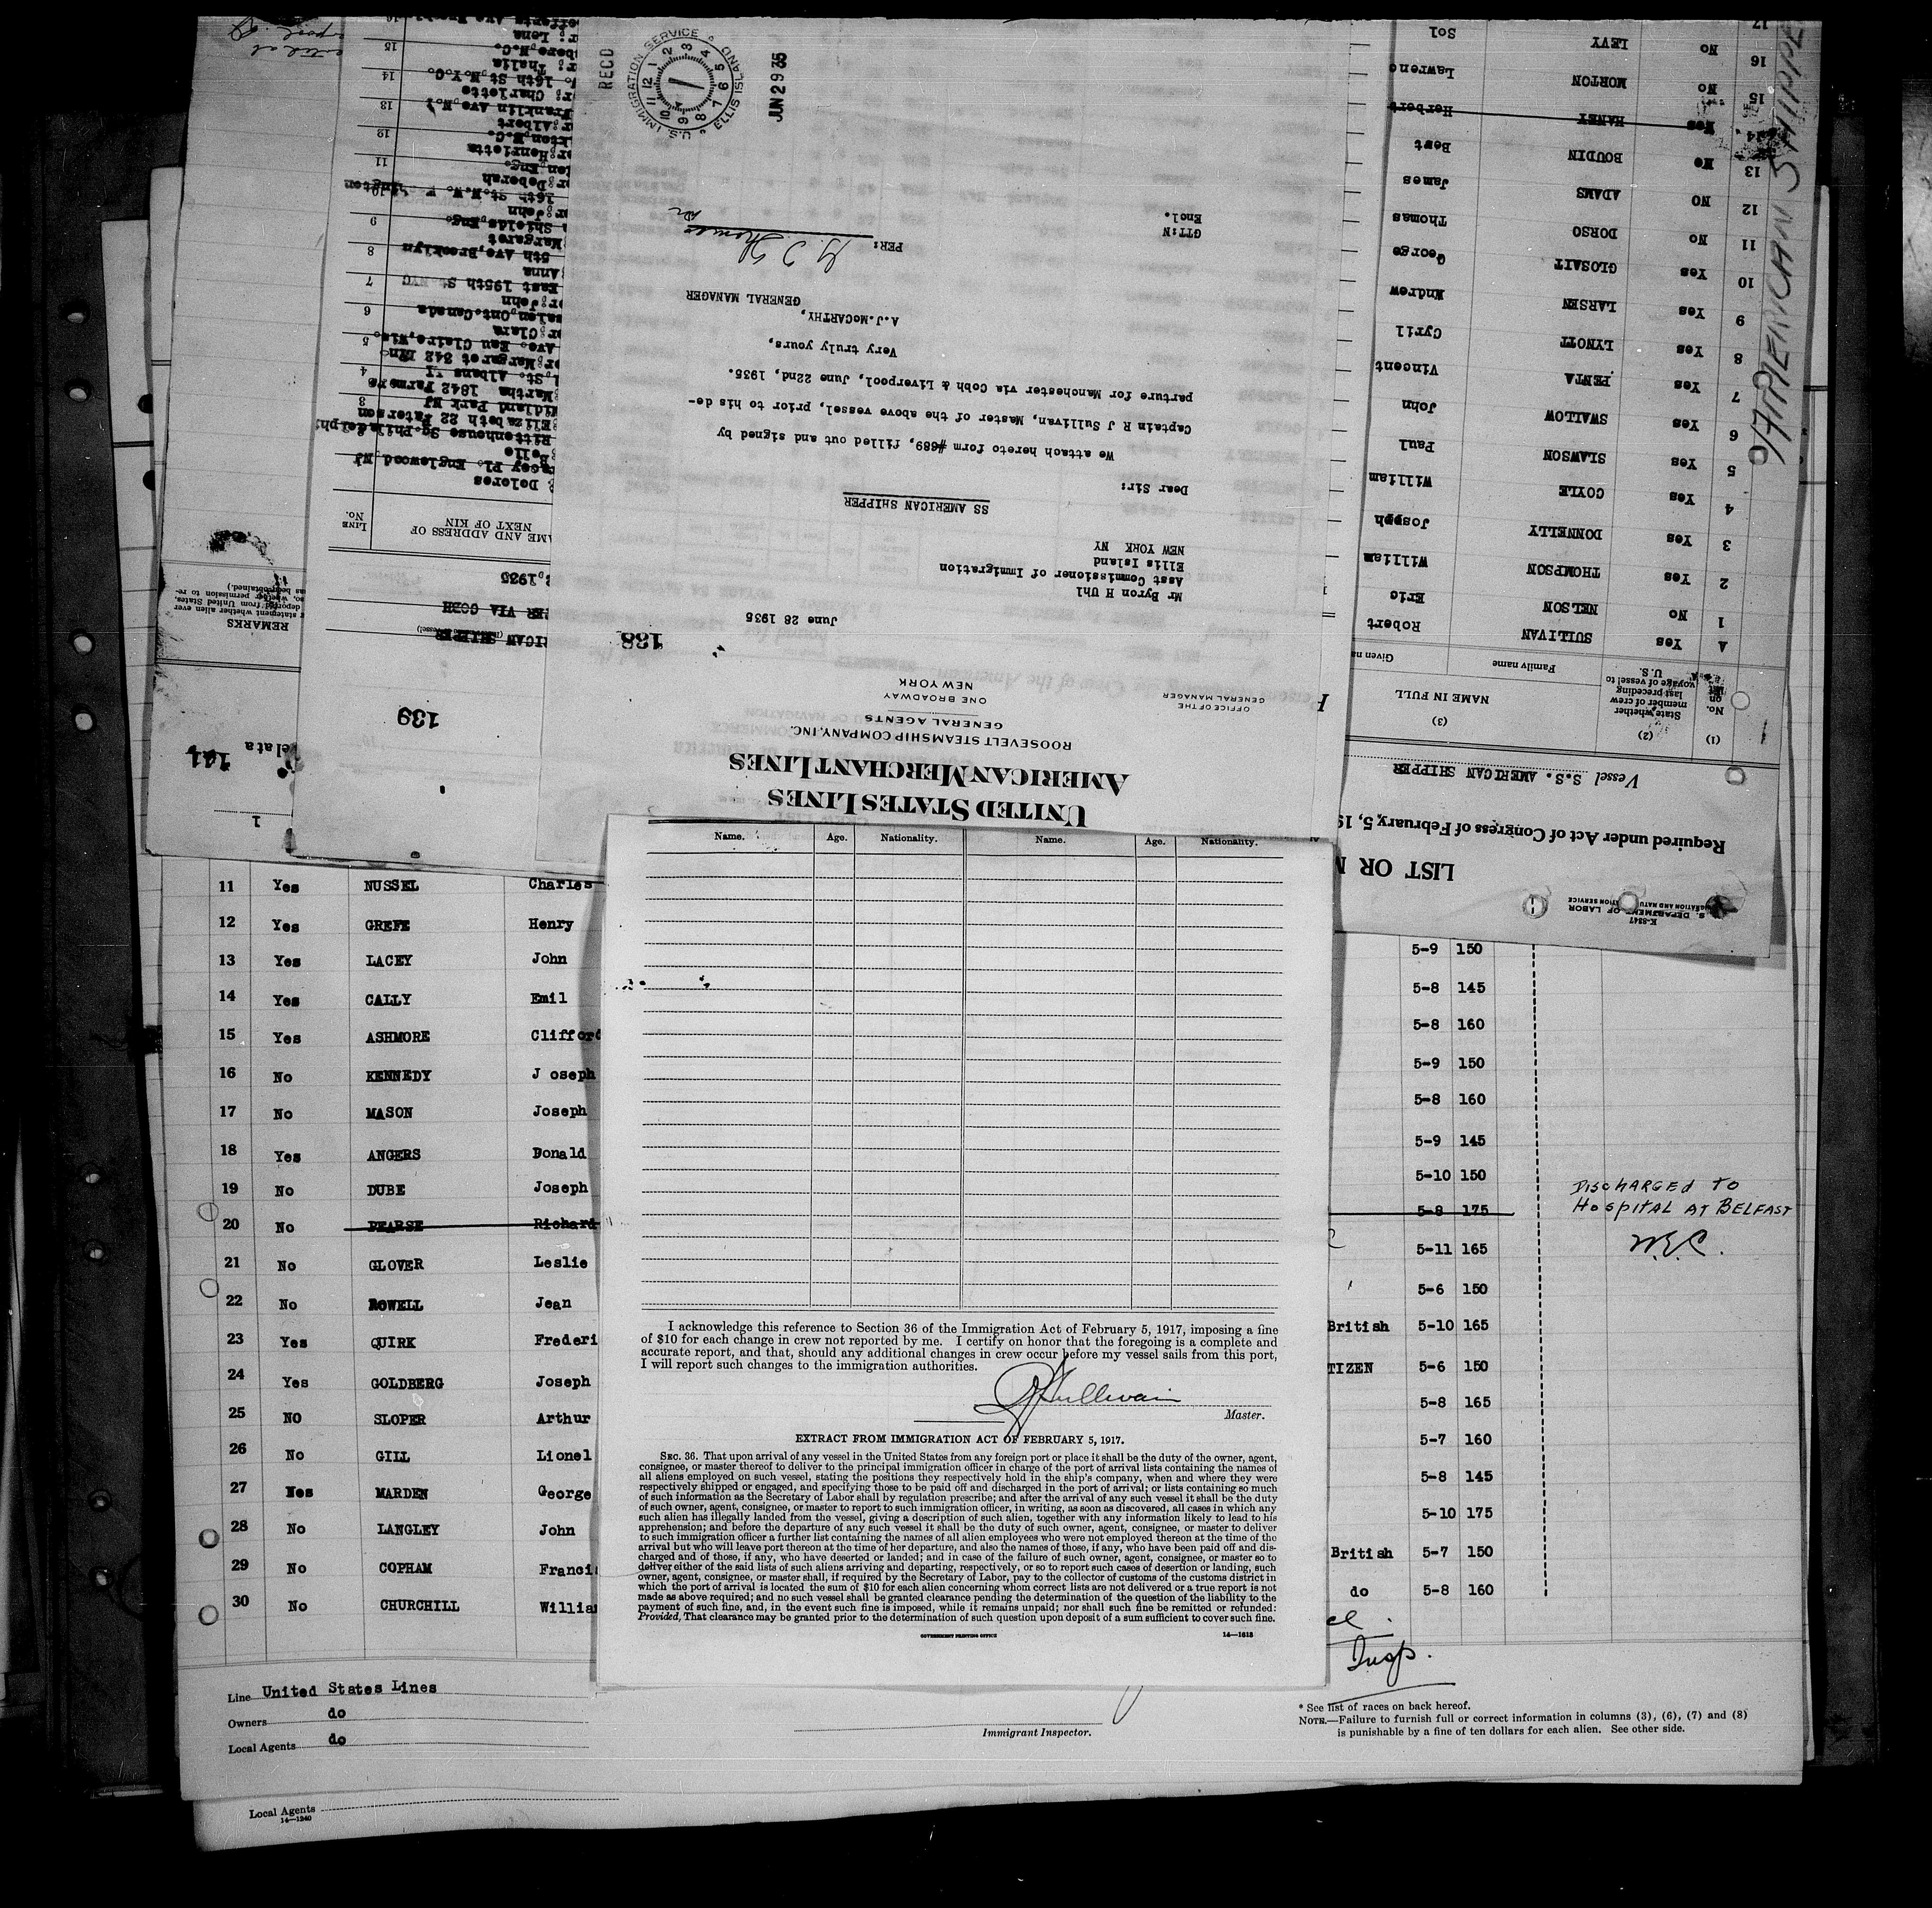 UNITED STATES LINES
AMERICAN MERCHANT LINES
ROOSEVELT STEAMSHIP COMPANY, INC.
GENERAL AGENTS
ONE BROADWAY
NEW YORK
OFFICE OF THE
GENERAL MANAGER
138
June 28 1935
Mr Byron H Uhl
Asst Commissioner of Immigration
Ellis Island
NEW YORK NY
SS AMERICAN SHIPPER
Dear Sir:
We attach hereto form #689, filled out and signed by
Captain R J Sullivan, Master of the above vessel, prior to his de-
parture for Manchester via Cobh & Liverpool, June 22nd, 1935.
Very truly yours,
A.J.McCARTHY,
GENERAL MANAGER
PER:
GTT:N
Encl.
RECD
U.S. IMMIGRATION SERVICE ELLIS ISLAND
12 1 2 3 4 5 6 7 8 9 10 11
JUN 29 35
K-8347
S. DEPARTMENT OF LABOR
LIST OR
Required under Act of Congress of February 5, 19
Vessel S.S. AMERICAN SHIPPER
(1) (2) (3)
No. on list
State whether member of crew last preceding voyage of vessel to U.S.
NAME IN FULL
Family name Given na
A Yes SULLIVAN Robert
1 No NELSON Eric
2 Yes THOMPSON William
3 Yes DONNELLY Joseph
4 Yes COYLE William
5 Yes SLAWSON Paul
6 Yes SWALLOW John
7 Yes PENTA Vincent
8 Yes LYNOTT Cyril
9 Yes LARSEN Andrew
10 Yes GLOSAIT George
11 No DORSO Thomas
12 NO ADAMS James
13 No BOUDIN Bert
14 Yes HANEY Herbert
15 No MORTON Lawrenc
16 No LEVY Sol
17
AMERICAN SHIPPE
139
ICAN SHIPPER
ER VIA COBH
1935
AME AND ADDRESS OF
NEXT OF KIN
LINE
No.
Dolores
acey Pl. Englewood NJ
Belle
Rittenhouse Sq. Philadelphi
Elizabeth 22 Paterson
idland Park NJ
3
Martha 1842 Farmers
St. Albans LI
4
r:Margaret 342
Ave. Eau Claire,Wis.
5
r:Clara
alen,Ont.Canada
6
r:John
East 195th St. NYC
7
Anna
5th Ave,Brooklyn
8
Margaret
Shields,Eng.
9
r:John
16th St.N.W.
10
r: Deborah
ton Eng.
11
r:Henrietta
rton,N.C.
12
r:Albert
Franklin Ave,N.Y.
13
r: Charlotte
16th St,N.Y.C.
14
r: Thalia
boro,N.C.
15
r: Lena
REMARKS
statement whether alien ever
deported from United States,
so, whether permission to re-
has been obtained.)
1
Name. Age. Nationality. Name. Age. Nationality.
I acknowledge this reference to Section 36 of the Immigration Act of February 5, 1917, imposing a fine
of $10 for each change in crew not reported by me. I certify on honor that the foregoing is a complete and
accurate report, and that, should any additional changes in crew occur before my vessel sails from this port,
I will report such changes to the immigration authorities.
RJSullivan
Master.
EXTRACT FROM IMMIGRATION ACT OF FEBRUARY 5, 1917.
SEC. 36. That upon arrival of any vessel in the United States from any foreign port or place it shall be the duty of the owner, agent,
consignee, or master thereof to deliver to the principal immigration officer in charge of the port of arrival lists containing the names of
all aliens employed on such vessel, stating the positions they respectively hold in the ship's company, when and where they were
respectively shipped or engaged, and specifying those to be paid off and discharged in the port of arrival; or lists containing so much
of such information as the Secretary of Labor shall by regulation prescribe; and after the arrival of any such vessel it shall be the duty
of such owner, agent, consignee, or master to report to such immigration officer, in writing, as soon as discovered, all cases in which any
such alien has illegally landed from the vessel, giving a description of such alien, together with any information likely to lead to his
apprehension; and before the departure of any such vessel it shall be the duty of such owner, agent, consignee, or master to deliver
to such immigration officer a further list containing the names of all alien employees who were not employed thereon at the time of the
arrival but who will leave port thereon at the time of her departure, and also the names of those, if any, who have been paid off and dis-
charged and of those, if any, who have deserted or landed; and in case of the failure of such owner, agent, consignee, or master so to
deliver either of the said lists of such aliens arriving and departing, respectively, or so to report such cases of desertion or landing, such
owner, agent, consignee, or master shall, if required by the Secretary of Labor, pay to the collector of customs of the customs district in
which the port of arrival is located the sum of $10 for each alien concerning whom correct lists are not delivered or a true report is not
made as above required; and no such vessel shall be granted clearance pending the determination of the question of the liability to the
payment of such fine, and, in the event such fine is imposed, while it remains unpaid; nor shall such fine be remitted or refunded:
Provided, That clearance may be granted prior to the determination of such question upon deposit of a sum sufficient to cover such fine.
GOVERNMENT PRINTING OFFICE 14—1613
11 Yes NUSSEL Charles 5-9 150
12 Yes GREFE Henry 5-8 145
13 Yes LACEY John 5-8 160
14 Yes CALLY Emil 5-9 150
15 Yes ASHMORE Clifford 5-8 160
16 No KENNEDY J oseph 5-9 145
17 No MASON Joseph 5-10 150
18 Yes ANGERS Donald
19 No DUBE Joseph
20 No PEARSE Richard 5-8 175 DISCHARGED TO
HOSPITAL AT BELFAST
W.E.C.
21 No GLOVER Leslie 5-11 165
22 No ROWELL Jean 5-6 150
23 Yes QUIRK Frederi British 5-10 165
24 Yes GOLDBERG Joseph TIZEN 5-6 150
25 NO SLOPER Arthur 5-8 165
26 No GILL Lionel 5-7 160
27 Yes MARDEN George 5-8 145
28 No LANGLEY John 5-10 175
29 No COPHAM Franci British 5-7 150
30 No CHURCHILL Willia do 5-8 160
Insp.
Line United States Lines
Owners do
Local Agents do
Immigrant Inspector.
* See list of races on back hereof.
NOTE.—Failure to furnish full or correct information in columns (3), (6), (7) and (8)
is punishable by a fine of ten dollars for each alien. See other side.
Local Agents
14—1240